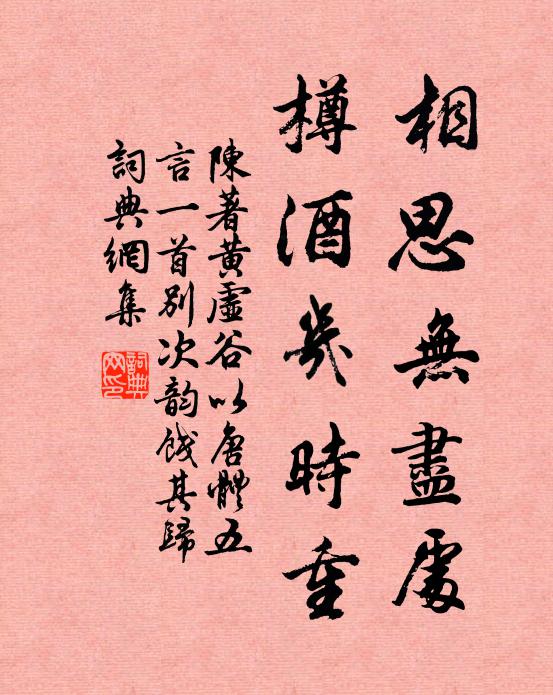 相思無盡處
樽酒幾時重
陳著黃虛谷以唐體五
言一首別次韵餞其歸
詞典網集
詞典
网印